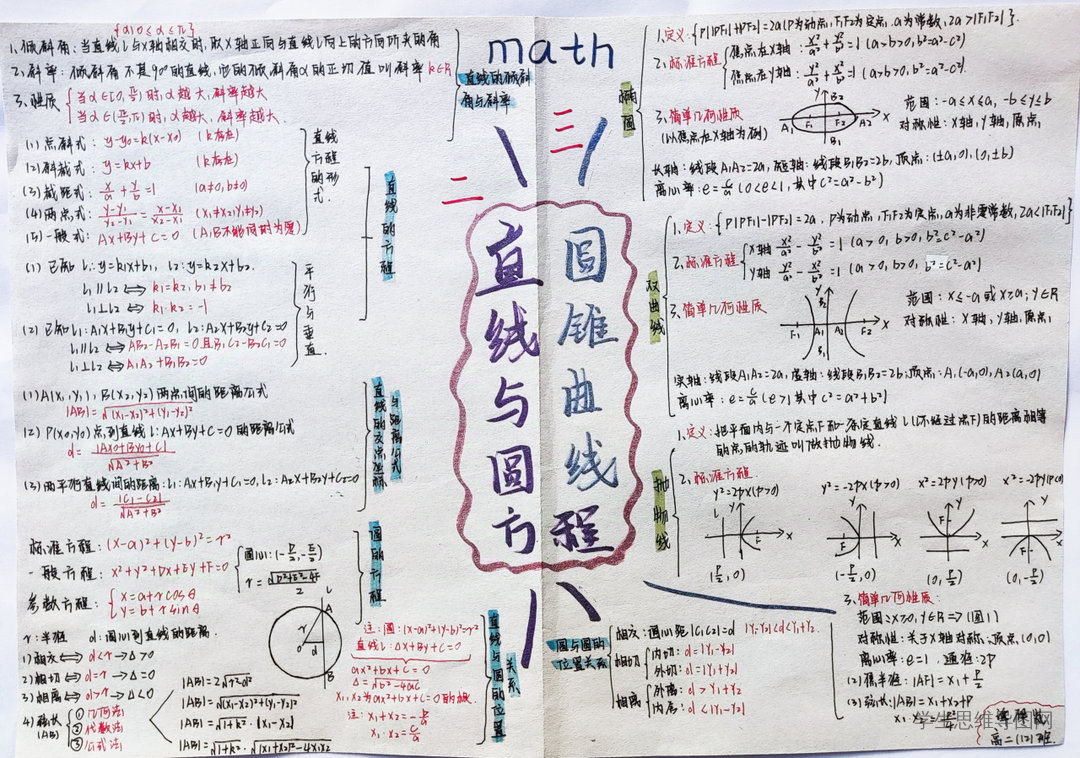 math
二
三
直线与圆方程
圆锥曲线
{α|0≤α≤π}
1、倾斜角：当直线L与X轴相交时，取X轴正向与直线L向上的方向所夹的角
2、斜率：倾斜角不是90°的直线，它的倾斜角α的正切值叫斜率 k∈R
3、性质
当α∈[0,π/2)时，α越大，斜率越大
当α∈(π/2,π)时，α越大，斜率越大.
直线的倾斜角与斜率
(1) 点斜式：y-y₀=k(x-x₀) (k存在)
(2) 斜截式：y=kx+b (k存在)
(3) 截距式：x/a+y/b=1 (a≠0,b≠0)
(4) 两点式：(y-y₁)/(y₂-y₁)=(x-x₁)/(x₂-x₁) (x₁≠x₂,y₁≠y₂)
(5) 一般式：Ax+By+C=0 (A,B不能同时为零)
直线方程的形式.
直线的方程
(1) 已知 L₁:y=k₁x+b₁, L₂:y=k₂x+b₂.
L₁∥L₂⇔k₁=k₂,b₁≠b₂
L₁⊥L₂⇔k₁·k₂=-1
(2) 已知L₁:A₁x+B₁y+C₁=0, L₂:A₂x+B₂y+C₂=0
L₁∥L₂⇔AB₂-A₂B₁=0且B₁C₂-B₂C₁=0
L₁⊥L₂⇔A₁A₂+B₁B₂=0
平行与垂直.
(1) A(x₁,y₁), B(x₂,y₂)两点间的距离公式
|AB|=√(x₁-x₂)²+(y₁-y₂)²
(2) P(x₀,y₀)点到直线L:Ax+By+C=0的距离公式
d=|Ax₀+By₀+C|/√A²+B²
(3) 两平行直线间的距离:L₁:Ax+By+C₁=0,L₂:Ax+By+C₂=0
d=|C₁-C₂|/√A²+B²
直线的交点坐标与距离公式
标准方程：(x-a)²+(y-b)²=r²
一般方程：x²+y²+Dx+Ey+F=0
圆心:(-D/2,-E/2)
r=√D²+E²-4F/2
参数方程：
x=a+rcosθ
y=b+rsinθ
圆的方程
r:半径 d:圆心到直线的距离.
1) 相交⇔d<r→△>0
2) 相切⇔d=r→△=0
3) 相离⇔d>r→△<0
4) 弦长|AB|
①几何法
②代数法
③公式法
|AB|=2√r²-d²
|AB|=√(x₁-x₂)²+(y₁-y₂)²
|AB|=√1+k²·|x₁-x₂|
|AB|=√1+k²·√(x₁+x₂)²-4x₁x₂
L
A
r
o
d
B
注:圆:(x-a)²+(y-b)²=r²
直线L:Ax+By+C=0
ax²+bx+C=0
△=√b²-4ac
x₁,x₂为ax²+bx+c=0的根.
注:x₁+x₂=-b/a
x₁·x₂=c/a
直线与圆的位置关系
椭圆
1、定义:{P||PF₁|+|PF₂|=2a(P为动点,F₁F₂为定点,a为常数,2a>|F₁F₂|}.
2、标准方程
焦点在X轴：x²/a²+y²/b²=1 (a>b>0,b²=a²-c²)
焦点在Y轴：y²/a²+x²/b²=1 (a>b>0,b²=a²-c²).
3、简单几何性质
(以焦点在X轴为例)
Y B₂
A₁ F₁ F₂ X
B₁
范围：-a≤x≤a, -b≤y≤b
对称性：X轴,Y轴,原点,
长轴：线段A₁A₂=2a,短轴：线段B₁B₂=2b,顶点：(±a,0),(0,±b)
离心率：e=c/a (0<e<1,其中c²=a²-b²)
双曲线
1、定义:{P||PF₁|-|PF₂|=2a,P为动点,F₁F₂为定点,a为非零常数,2a<|F₁F₂|}
2、标准方程
X轴 x²/a²-y²/b²=1 (a>0,b>0,b²=c²-a²)
Y轴 y²/a²-x²/b²=1 (a>0,b>0,b²=c²-a²)
3、简单几何性质
Y
B₂
F₁ A₁ A₂ F₂ X
B₁
范围：x≤-a或x≥a,y∈R
对称性：X轴,Y轴,原点,
实轴：线段A₁A₂=2a,虚轴：线段B₁B₂=2b,顶点：A₁(-a,0),A₂(a,0)
离心率：e=c/a (e>1,其中c²=a²+b²)
抛物线
1、定义：把平面内与一个定点F和一条定直线L(L不经过点F)的距离相等
的点的轨迹叫做抛物线.
2、标准方程
y²=2px(p>0) y²=-2px(p>0) x²=2py(p>0) x²=-2py(p>0)
(p/2,0) (-p/2,0) (0,p/2) (0,-p/2)
3、简单几何性质：
范围:x≥0,y∈R⇒(图1)
对称性:关于X轴对称,顶点(0,0)
离心率:e=1. 通径:2p
(2) 焦半径:|AF|=x₁+p/2
(3) 弦长:|AB|=x₁+x₂+p
圆与圆的位置关系
相交:圆心距|C₁C₂|=d |r₁-r₂|<d<r₁+r₂.
相切
内切:d=|r₁-r₂|
外切:d=|r₁+r₂|
相离
外离:d>r₁+r₂
内含:d<|r₁-r₂|
高二(12)班.
学生思维导图网